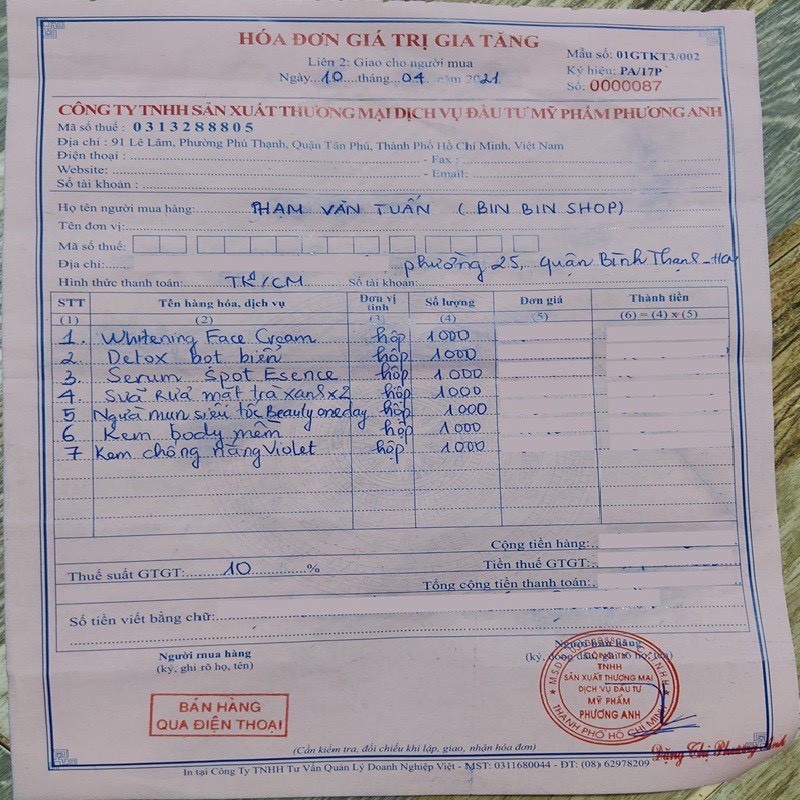 HÓA ĐƠN GIÁ TRỊ GIA TĂNG
Liên 2: Giao cho người mua
Ngày 10 tháng 04 năm 2021
Mẫu số: 01GTKT3/002
Ký hiệu: PA/17P
Số: 0000087
CÔNG TY TNHH SẢN XUẤT THƯƠNG MẠI DỊCH VỤ ĐẦU TƯ MỸ PHẨM PHƯƠNG ANH
Mã số thuế : 0313288805
Địa chỉ : 91 Lê Lâm, Phường Phú Thạnh, Quận Tân Phú, Thành Phố Hồ Chí Minh, Việt Nam
Điện thoại : - Fax :
Website: - Email:
Số tài khoản :
Họ tên người mua hàng: PHẠM VĂN TUẤN ( BIN BIN SHOP)
Tên đơn vị:
Mã số thuế:
Địa chỉ: phường 25, quận Bình Thạnh
Hình thức thanh toán: TM/CK Số tài khoản:
STT Tên hàng hóa, dịch vụ Đơn vị tính Số lượng Đơn giá Thành tiền
(1) (2) (3) (4) (5) (6) = (4) x (5)
1. Whitening Face Cream hộp 1000
2 Detox bọt biển hộp 1.000
3 Serum Spot Esence hộp 1.000
4 Sữa Rửa mặt trà xanh x2 hộp 1.000
5 Ngừa mụn siêu tốc Beauty oneday hộp 1.000
6 Kem body mềm hộp 1.000
7 Kem chống nắng Violet hộp 1.000
Cộng tiền hàng:
Thuế suất GTGT: 10 % Tiền thuế GTGT:
Tổng cộng tiền thanh toán:
Số tiền viết bằng chữ:
Người mua hàng
(ký, ghi rõ họ, tên)
Người bán hàng
(ký, đóng dấu, ghi rõ họ, tên)
BÁN HÀNG
QUA ĐIỆN THOẠI
CÔNG TY
TNHH
SẢN XUẤT THƯƠNG MẠI
DỊCH VỤ ĐẦU TƯ
MỸ PHẨM
PHƯƠNG ANH
THÀNH PHỐ HỒ CHÍ MINH
Đặng Thị Phương Anh
(Cần kiểm tra, đối chiếu khi lập, giao, nhận hóa đơn)
In tại Công Ty TNHH Tư Vấn Quản Lý Doanh Nghiệp Việt - MST: 0311680044 - ĐT: (08) 62978209